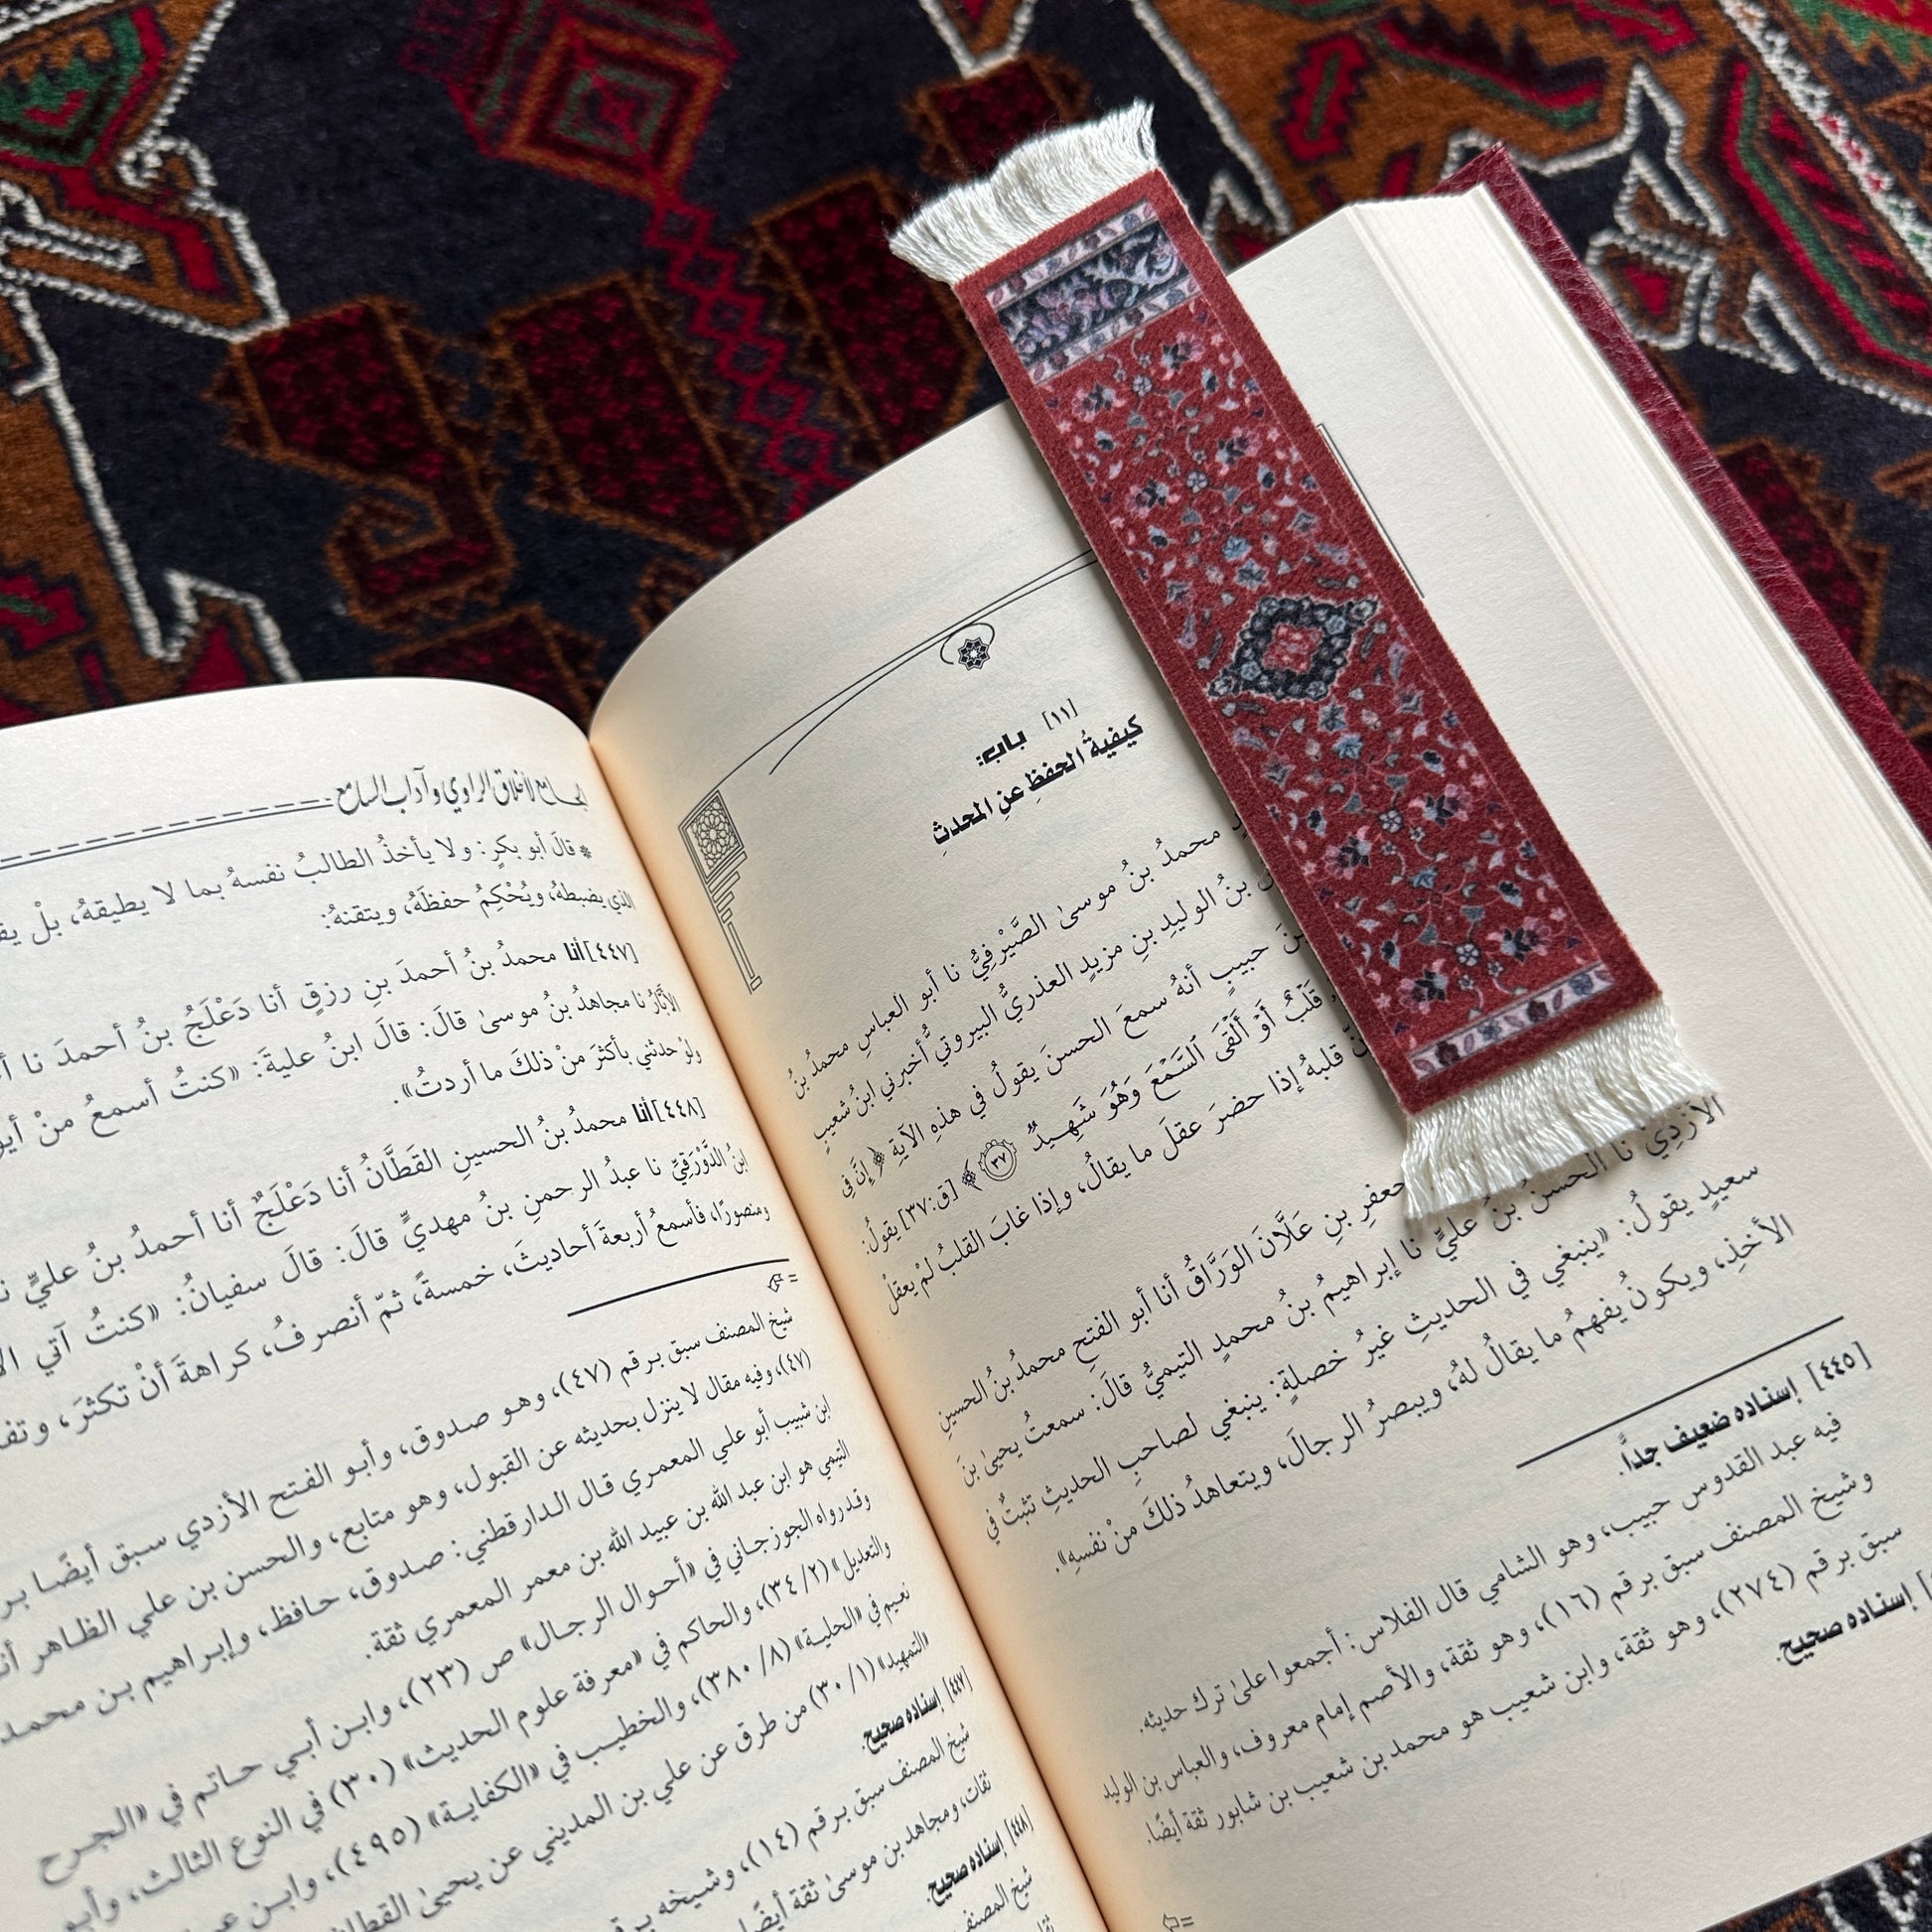 [١١] باب:
كيفيةُ الحفظِ عنِ المحدثِ
محمدُ بنُ موسىٰ الصَّيْرفِيُّ نا أبو العباسِ محمدُ بنُ
بنُ الوليدِ بنِ مزيدٍ العذريُّ البيروتيُّ أخبرني ابنُ شعيبٍ
حبيبٍ أنهُ سمعَ الحسنَ يقولُ في هذهِ الآيةِ ﴿إِنَّ فِي
قَلْبٌ أَوْ أَلْقَى ٱلسَّمْعَ وَهُوَ شَهِيدٌ ٣٧﴾ [ق:٣٧] يقولُ:
قلبهُ إذا حضرَ عقلَ ما يقالُ، وإذا غابَ القلبُ لمْ يعقلْ
جعفرِ بنِ عَلَّانَ الوَرَّاقُ أنا أبو الفتحِ محمدُ بنُ الحسينِ
الأزديُّ نا الحسنُ بنُ عليٍّ نا إبراهيمُ بنُ محمدٍ التيميُّ قالَ: سمعتُ يحيىٰ بنَ
سعيدٍ يقولُ: «ينبغي في الحديثِ غيرُ خصلةٍ: ينبغي لصاحبِ الحديثِ تثبتٌ في
الأخذِ، ويكونُ يفهمُ ما يقالُ لهُ، ويبصرُ الرجالَ، ويتعاهدُ ذلكَ منْ نفسِهِ».
[٤٤٥] إسناده ضعيف جدًّا.
فيه عبد القدوس حبيب، وهو الشامي قال الفلاس: أجمعوا علىٰ ترك حديثه.
وشيخ المصنف سبق برقم (١٦)، وهو ثقة، والأصم إمام معروف، والعباس بن الوليد
سبق برقم (٢٧٤)، وهو ثقة، وابن شعيب هو محمد بن شعيب بن شابور ثقة أيضًا.
إسناده صحيح.
الجامع لأخلاق الراوي وآداب السامع
* قالَ أبو بكرٍ: ولا يأخذُ الطالبُ نفسهُ بما لا يطيقهُ، بلْ
الذي يضبطهُ، ويُحْكِمُ حفظَهُ، ويتقنهُ:
[٤٤٧] أنا محمدُ بنُ أحمدَ بنِ رزقٍ أنا دَعْلَجُ بنُ أحمدَ نا
الأَبَّارُ نا مجاهدُ بنُ موسىٰ قالَ: قالَ ابنُ عليةَ: «كنتُ أسمعُ منْ
ولوْ حدثني بأكثرَ منْ ذلكَ ما أردتُ».
[٤٤٨] أنا محمدُ بنُ الحسينِ القَطَّانُ أنا دَعْلَجٌ أنا أحمدُ بنُ عليٍّ
ابنُ الدَّوْرَقِيِّ نا عبدُ الرحمنِ بنُ مهديٍّ قالَ: قالَ سفيانُ: «كنتُ آتي
ومنصورًا، فأسمعُ أربعةَ أحاديثَ، خمسةً، ثمّ أنصرفُ، كراهةَ أنْ تكثرَ،
شيخ المصنف سبق برقم (٤٧)، وهو صدوق، وأبو الفتح الأزدي سبق أيضًا
(٤٧)، وفيه مقال لا ينزل بحديثه عن القبول، وهو متابع، والحسن بن علي الظاهر
ابن شبيب أبو علي المعمري قال الدارقطني: صدوق، حافظ، وإبراهيم بن محمد
التيمي هو ابن عبد الله بن عبيد الله بن معمر المعمري ثقة.
وقد رواه الجوزجاني في «أحوال الرجال» ص (٢٣)، وابن أبي حاتم في «الجرح
والتعديل» (٢/ ٣٤)، والحاكم في «معرفة علوم الحديث» (٣٠) في النوع الثالث، وأبو
نعيم في «الحلية» (٨/ ٣٨٠)، والخطيب في «الكفاية» (٤٩٥)، وابن
«التمهيد» (١/ ٣٠) من طرق عن علي بن المديني عن يحيىٰ القطان
[٤٤٧] إسناده صحيح.
شيخ المصنف سبق برقم (١٤)، وشيخه
ثقات، ومجاهد بن موسىٰ ثقة أيضًا
[٤٤٨] إسناده صحيح.
شيخ المصنف